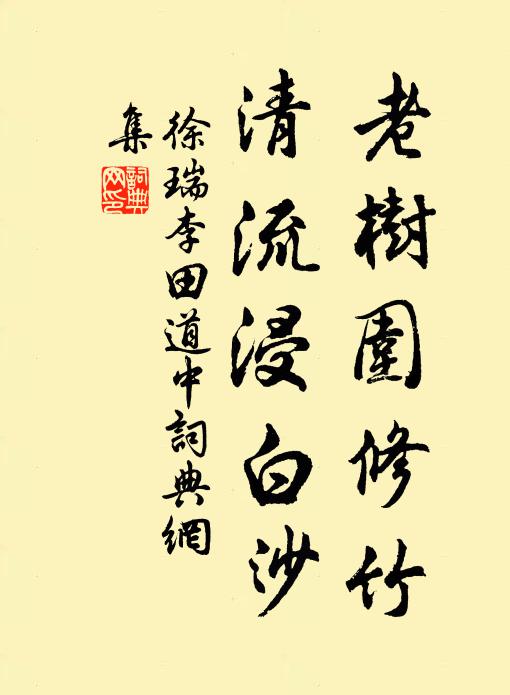 老樹圍修竹
清流浸白沙
徐瑞李田道中詞典網
集
詞典
网印